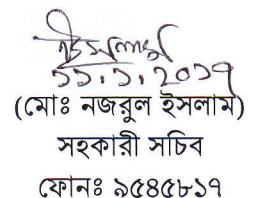 ১১.১.২০১৭
(মোঃ নজরুল ইসলাম)
সহকারী সচিব
ফোনঃ ৯৫৪৫৮১৭